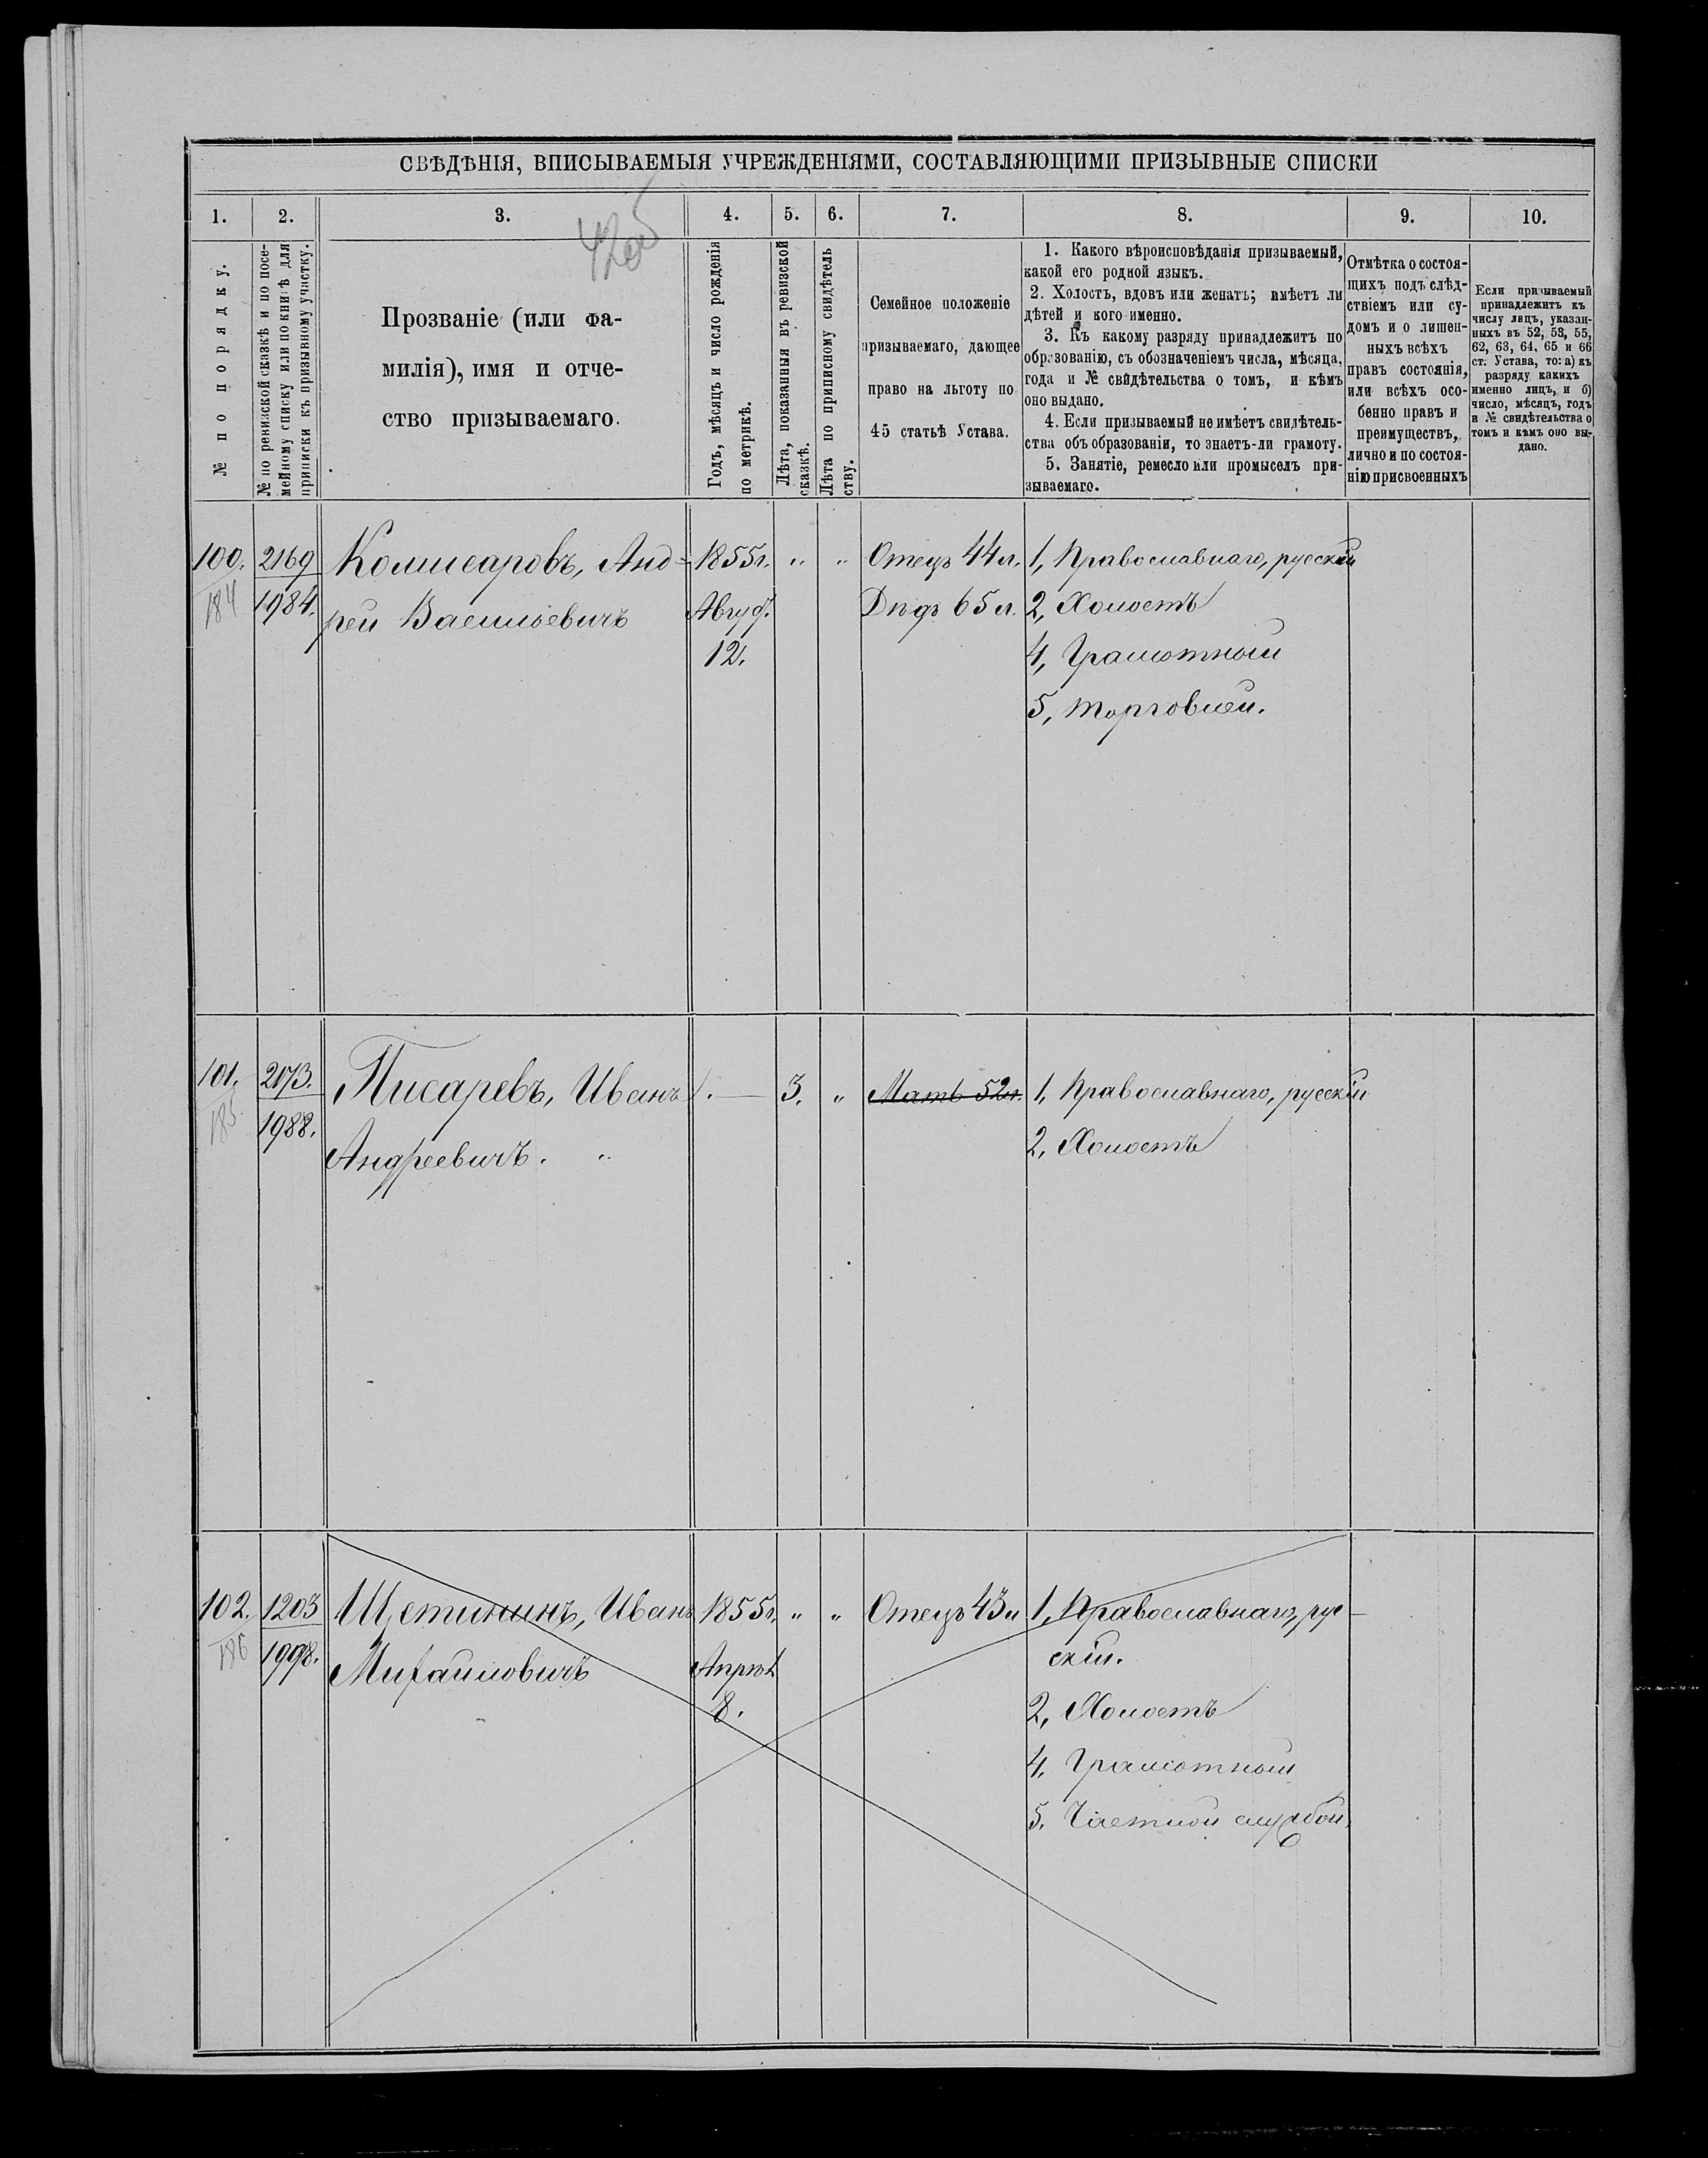 СВѢДѢНІЯ, ВПИСЫВАЕМЫЯ УЧРЕЖДЕНІЯМИ, СОСТАВЛЯЮЩИМИ ПРИЗЫВНЫЕ СПИСКИ
1. 2. 3. 4. 5. 6. 7. 8. 9. 10.
№ по порядку.
№ по ревизской сказкѣ и по посе-
мейному списку или по книгѣ для
приписки къ призывному участку.
Прозваніе (или фа-
милія), имя и отче-
ство призываемаго.
Годъ, мѣсяцъ и число рожденія
по метрикѣ.
Лѣта, показанныя въ ревизской
сказкѣ.
Лѣта по приписному свидѣтель
ству.
Семейное положеніе
призываемаго, дающее
право на льготу по
45 статьѣ Устава.
1. Какого вѣроисповѣданія призываемый,
какой его родной языкъ.
2. Холостъ, вдовъ или женатъ; имѣетъ ли
дѣтей и кого именно.
3. Къ какому разряду принадлежитъ по
образованію, съ обозначеніемъ числа, мѣсяца,
года и № свидѣтельства о томъ, и кѣмъ
оно выдано.
4. Если призываемый не имѣетъ свидѣтель-
ства объ образованіи, то знаетъ-ли грамоту.
5. Занятіе, ремесло или промыселъ при-
зываемаго.
Отмѣтка о состоя-
щихъ подъ слѣд-
ствіемъ или су-
домъ и о лишен-
ныхъ всѣхъ
правъ состоянія,
или всѣхъ осо-
бенно правъ и
преимуществъ,
лично и по состоя-
нію присвоенныхъ
Если призываемый
принадлежитъ къ
числу лицъ, указан-
ныхъ въ 52, 53, 55,
62, 63, 64, 65 и 66
ст. Устава, то: а) къ
разряду какихъ
именно лицъ, и б)
число, мѣсяцъ, годъ
и № свидѣтельства о
томъ и кѣмъ оно вы-
дано.
100. 2169 Коммисаровъ, Анд- 1855г. " " Отецъ 44л. 1, Православнаго, русскій
184 1984. рей Васильевичъ Август. Дѣдъ 65л. 2, Холостъ
12. 4, Грамотной
5, Торговлей.
101. 2073. Писаревъ, Иванъ — 3. " Мать 52л. 1, Православнаго, русскій
185. 1988. Андреевичъ. " 2, Холостъ
102. 1203 Щетининъ, Иванъ 1855г. " " Отецъ 43л 1, Православнаго, рус-
186 1998. Михайловичъ Апрѣл скій.
8. 2, Холостъ
4. Грамотной
5. Частной службой.